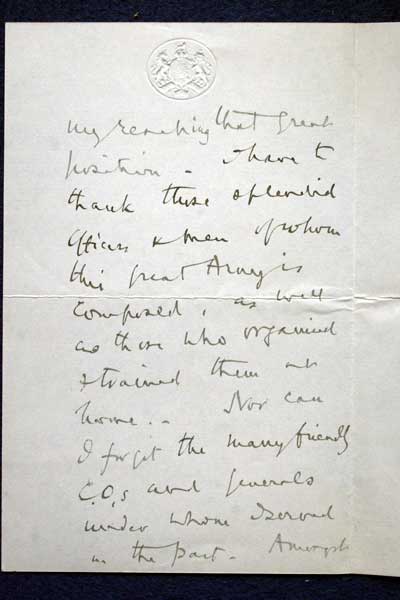 my reaching that great
position - I have to
thank those splendid
officers & men of whom
this great Army is
composed, as well
as those who organised
& trained them at
home. - Nor can
I forget the many friendly
C.O.s and generals
under whom I served
in the past - Amongst